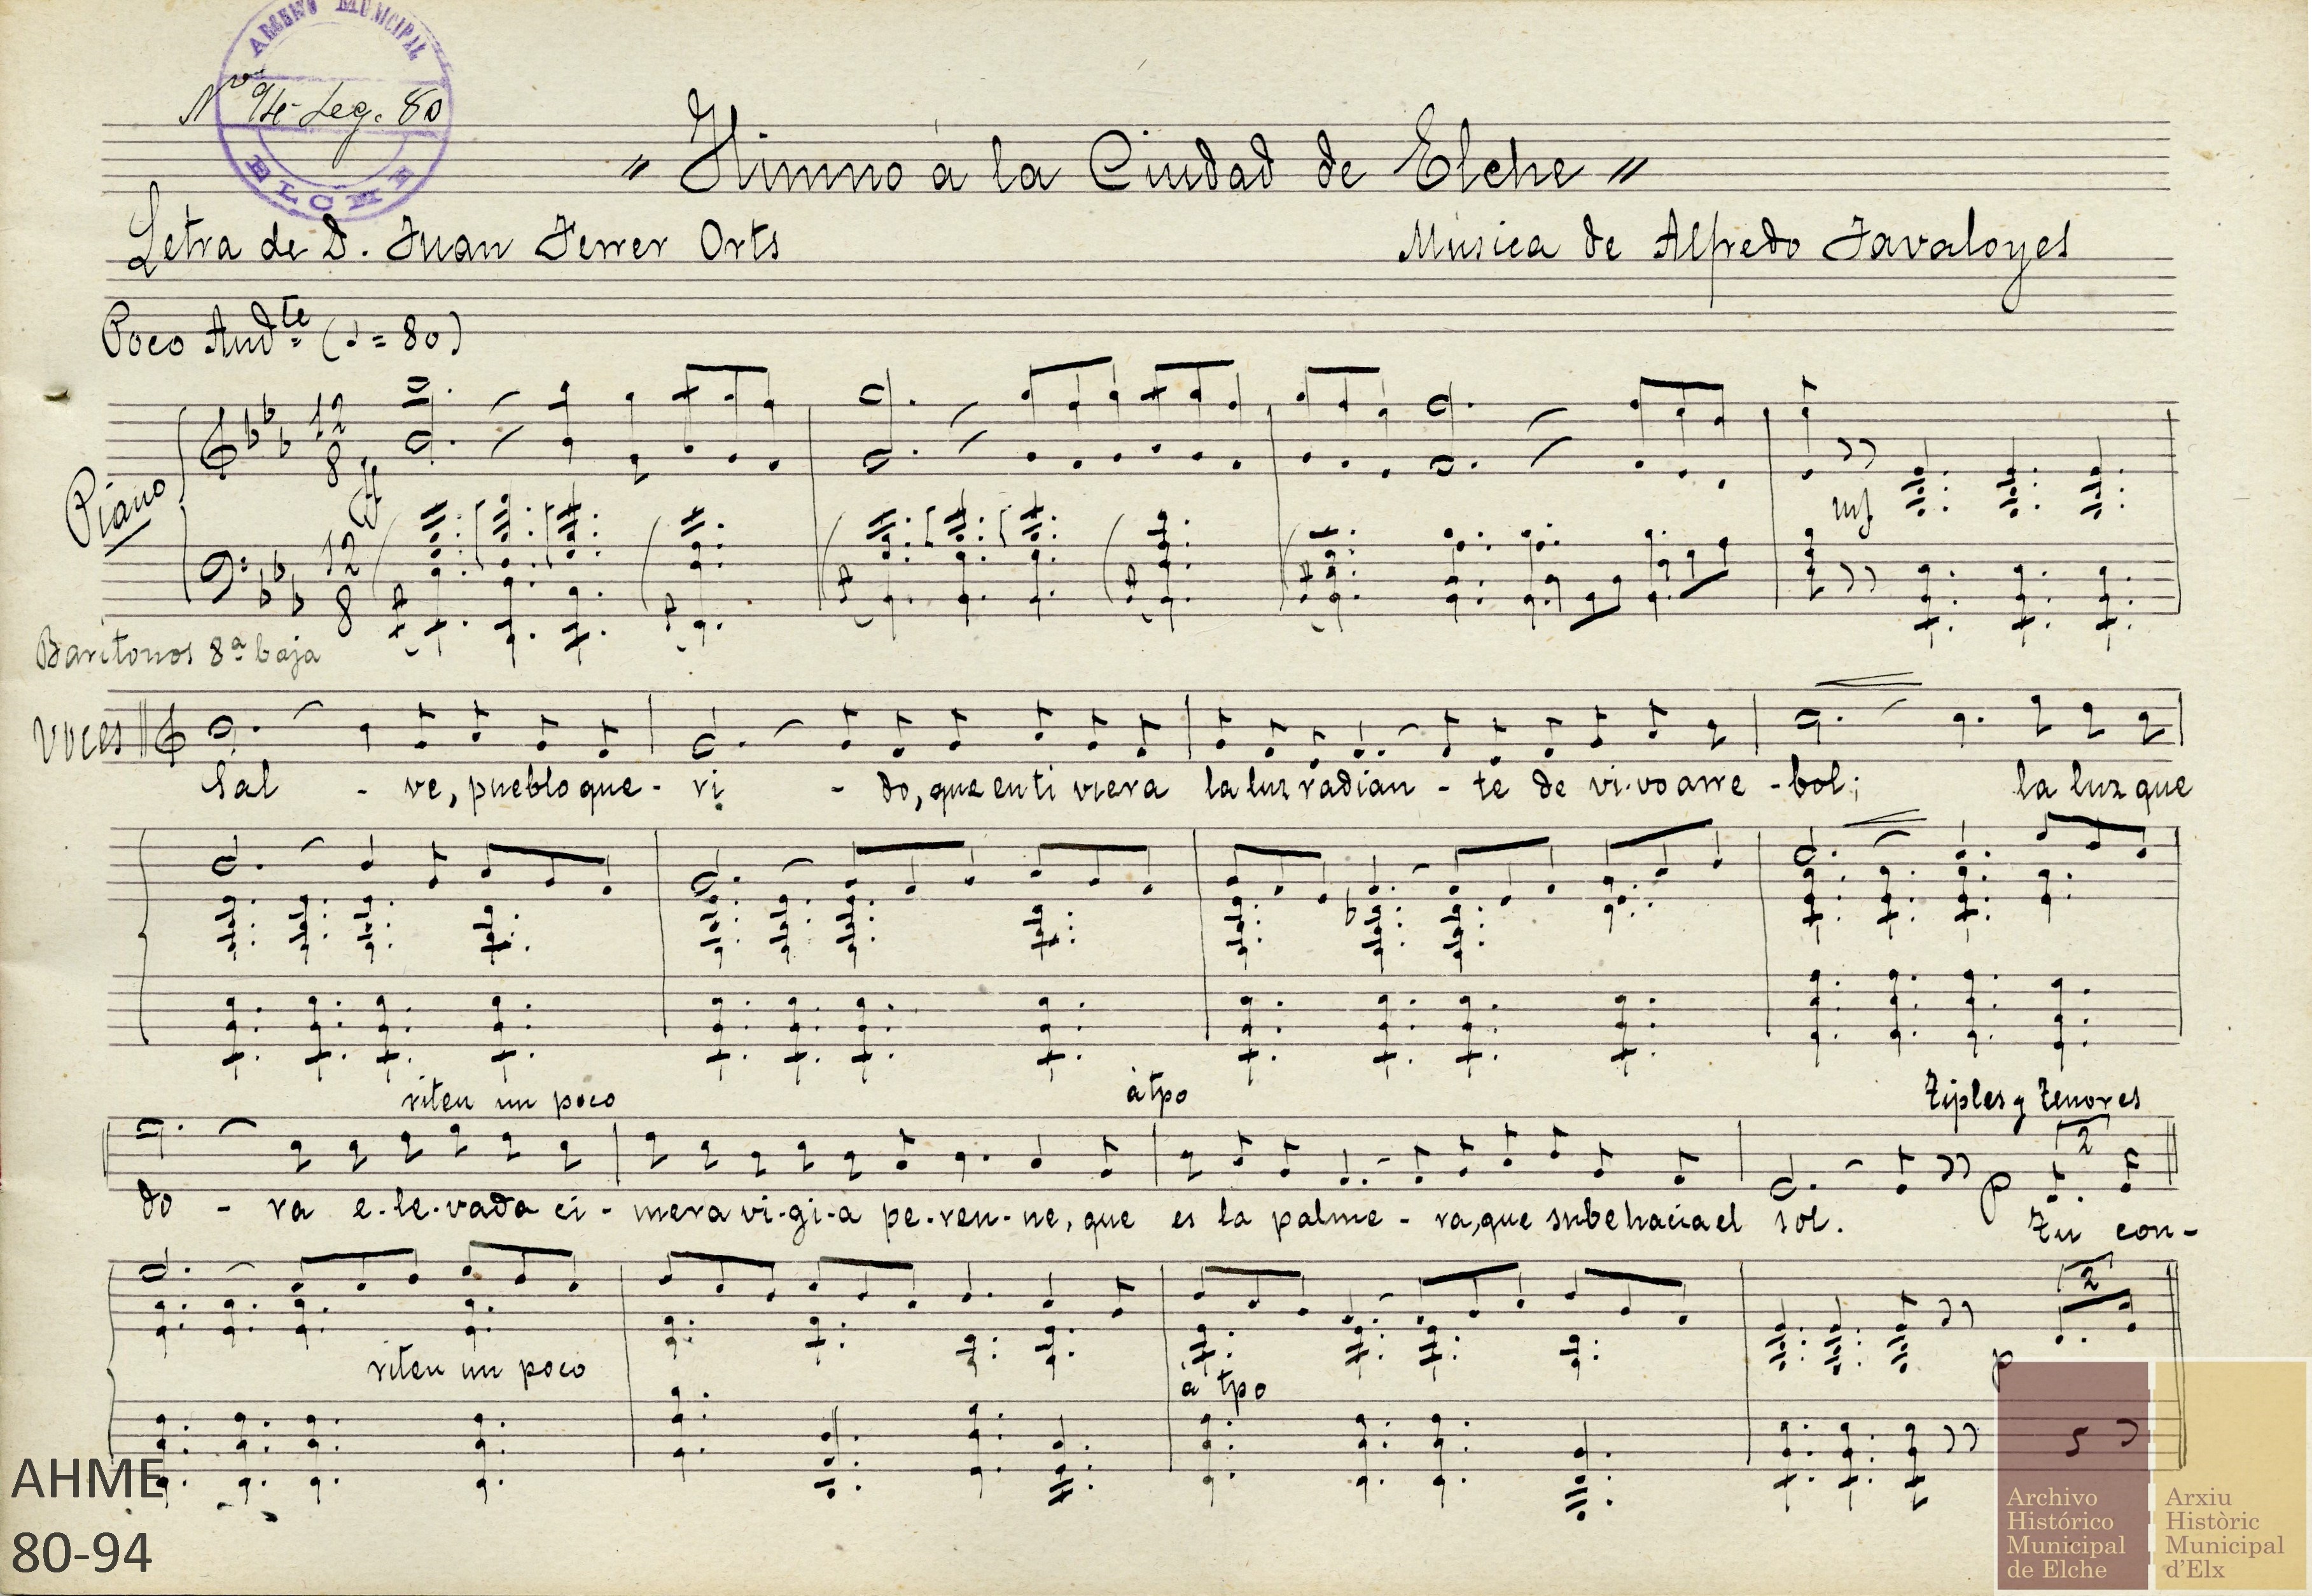 ARCHIVO MUNICIPAL
Nº 94-Leg. 80
ELCHE
" Himno á la Ciudad de Elche "
Letra de D. Juan Ferrer Orts
Música de Alfredo Javaloyes
Poco And.te (♩. = 80)
Piano
12
8
ff
12
8
mf
Barítonos 8ª baja
Voces
Sal - ve, pueblo que - ri - do, que en ti viera la luz radian - te de vi-vo arre - bol; la luz que
riten un poco
á tpo
Tiples y Tenores
2
p
do - ra e-le-vada ci - mera vi-gi-a pe-ren-ne, que es la palme - ra, que sube hacia el sol. Tu con-
2
riten un poco
á tpo
p
AHME
80-94
Archivo
Histórico
Municipal
de Elche
Arxiu
Històric
Municipal
d'Elx